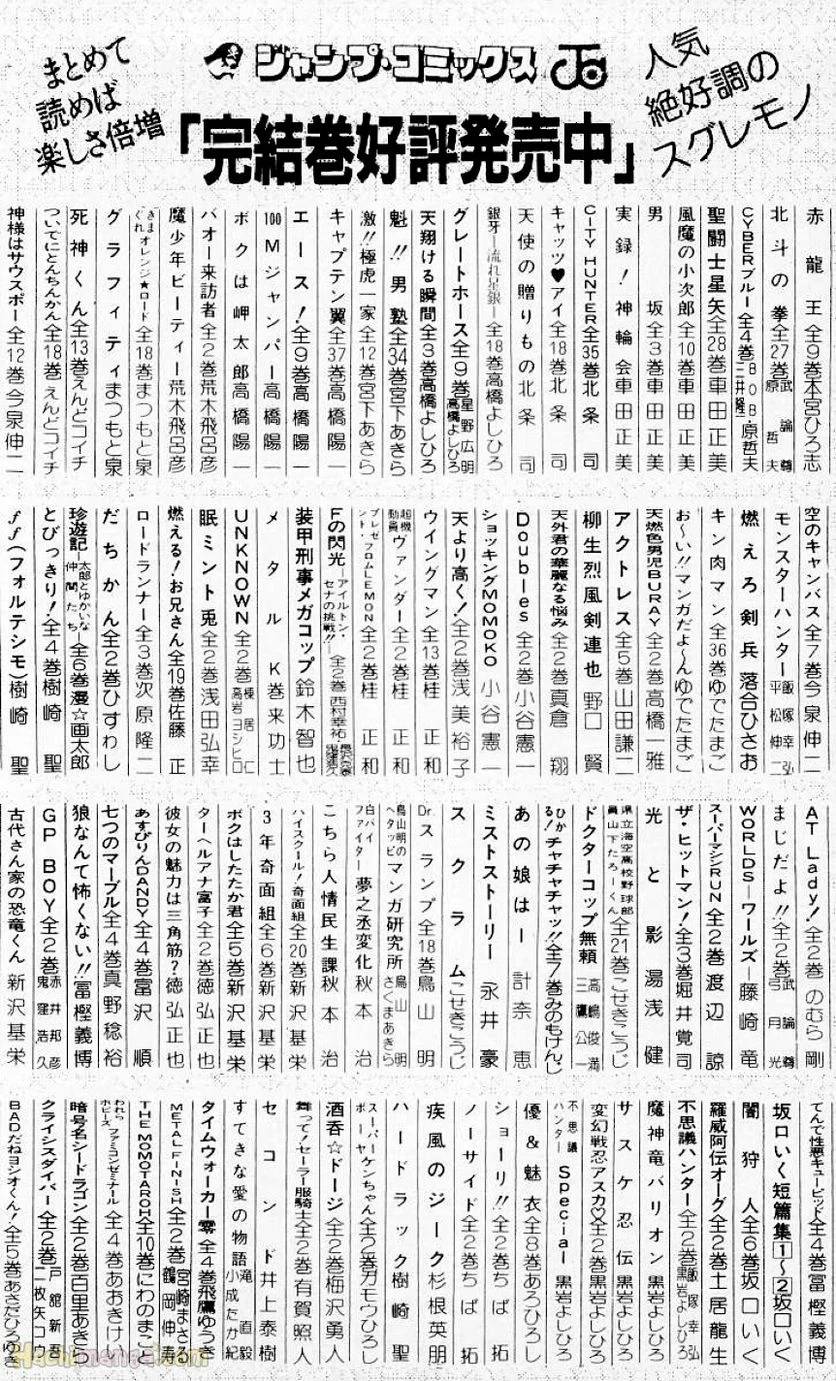 まとめて
読めば
楽しさ倍増
ジャンプ・コミックス
人気
絶好調の
スグレモノ
「完結巻好評発売中」
赤龍王全9巻本宮ひろ志
北斗の拳全27巻武論尊 原哲夫
CYBERブルー全4巻BOB 三井隆一 原哲夫
聖闘士星矢全28巻車田正美
風魔の小次郎全10巻車田正美
男坂全3巻車田正美
実録!神輪会車田正美
CITY HUNTER全35巻北条司
キャッツ♥アイ全18巻北条司
天使の贈りもの北条司
銀牙―流れ星銀―全18巻高橋よしひろ
グレートホース全9巻星野広明 高橋よしひろ
天翔ける瞬間全3巻高橋よしひろ
魁!!男塾全34巻宮下あきら
激!!極虎一家全12巻宮下あきら
キャプテン翼全37巻高橋陽一
エース!全9巻高橋陽一
100Mジャンパー高橋陽一
ボクは岬太郎高橋陽一
バオー来訪者全2巻荒木飛呂彦
魔少年ビーティー荒木飛呂彦
きまぐれオレンジ★ロード全18巻まつもと泉
グラフィティまつもと泉
死神くん全13巻えんどコイチ
ついでにとんちんかん全18巻えんどコイチ
神様はサウスポー全12巻今泉伸二
空のキャンバス全7巻今泉伸二
モンスターハンター飯塚幸弘 平松伸二
燃えろ剣兵落合ひさお
キン肉マン全36巻ゆでたまご
お〜い!!マンガだよ〜んゆでたまご
天燃色男児BURAY全2巻高橋一雅
アクトレス全5巻山田謙二
柳生烈風剣連也野口賢
天外君の華麗なる悩み全2巻真倉翔
Doubles全2巻小谷憲一
ショッキングMOMOKO小谷憲一
天より高く!全2巻浅美裕子
ウイングマン全13巻桂正和
超機動員ヴァンダー全2巻桂正和
プレゼント・フロムLEMON全2巻桂正和
Fの閃光―アイルトン・セナの挑戦!!―全2巻西村幸祐
装甲刑事メガコップ鈴木智也
メタルK巻来功士
UNKNOWN全2巻棟居仁 高岩ヨシヒロ
眠兎全2巻浅田弘幸
燃える!お兄さん全19巻佐藤正
ロードランナー全3巻次原隆二
だちかん全2巻ひすわし
珍遊記―太郎とゆかいな仲間たち―全6巻漫☆画太郎
とびっきり!全4巻樹崎聖
ff(フォルテシモ)樹崎聖
AT Lady!全2巻のむら剛
まじだよ!!全2巻武論尊 弓月光
WORLDS―ワールズ―藤崎竜
スーパーマシンRUN全2巻渡辺諒
ザ・ヒットマン!全3巻堀井覚司
光と影湯浅健
県立海空高校野球部員山下たろーくん全21巻こせきこうじ
ドクターコップ無頼高嶋俊満 三鷹公一
ひかる!チャチャチャッ!!全7巻みのもけんじ
あの娘はー計奈恵
ミストストーリー永井豪
スクラムこせきこうじ
Dr.スランプ全18巻鳥山明
鳥山明のヘタッピマンガ研究所鳥山明 さくまあきら
白バイファイター夢之丞変化秋本治
こちら人情民生課秋本治
ハイスクール!奇面組全20巻新沢基栄
3年奇面組全6巻新沢基栄
ボクはしたたか君全5巻新沢基栄
ターヘルアナ富子全2巻徳弘正也
彼女の魅力は三角筋?徳弘正也
あすぴりんDANDY全4巻富沢順
七つのマーブル全4巻真野稔裕
狼なんて怖くない!!冨樫義博
GP BOY全2巻赤井邦彦 鬼窪浩久
古代さん家の恐竜くん新沢基栄
てんで性悪キューピッド全4巻冨樫義博
坂口いく短篇集1〜2坂口いく
闇狩人全6巻坂口いく
羅威阿伝オーグ全2巻土居龍生
不思議ハンター全2巻飯塚幸弘 黒岩よしひろ
魔神竜バリオン黒岩よしひろ
サスケ忍伝黒岩よしひろ
変幻戦忍アスカ♡全2巻黒岩よしひろ
不思議ハンターSpecial黒岩よしひろ
優&魅衣全8巻あろひろし
ショーリ!!全2巻ちば拓
ノーサイド全2巻ちば拓
疾風のジーク杉根英朋
ハードラック樹崎聖
スーパーボーヤケンちゃん全2巻ガモウひろし
酒呑☆ドージ全2巻梅沢勇人
舞って!セーラー服騎士全2巻有賀照人
セコンド井上泰樹
すてきな愛の物語滝直毅 小成たか紀
タイムウォーカー零全4巻飛鷹ゆうき
METAL FINISH全2巻宮崎まさる 鶴岡伸寿
THE MOMOTAROH全10巻にわのまこと
われらホビーズファミコンゼミナール全4巻あおきけい
暗号名シードラゴン全2巻百里あきら
クライシスダイバー全2巻戸舘新吾 二枚矢コウ
BADだねヨシオくん!全5巻あさだひろゆき